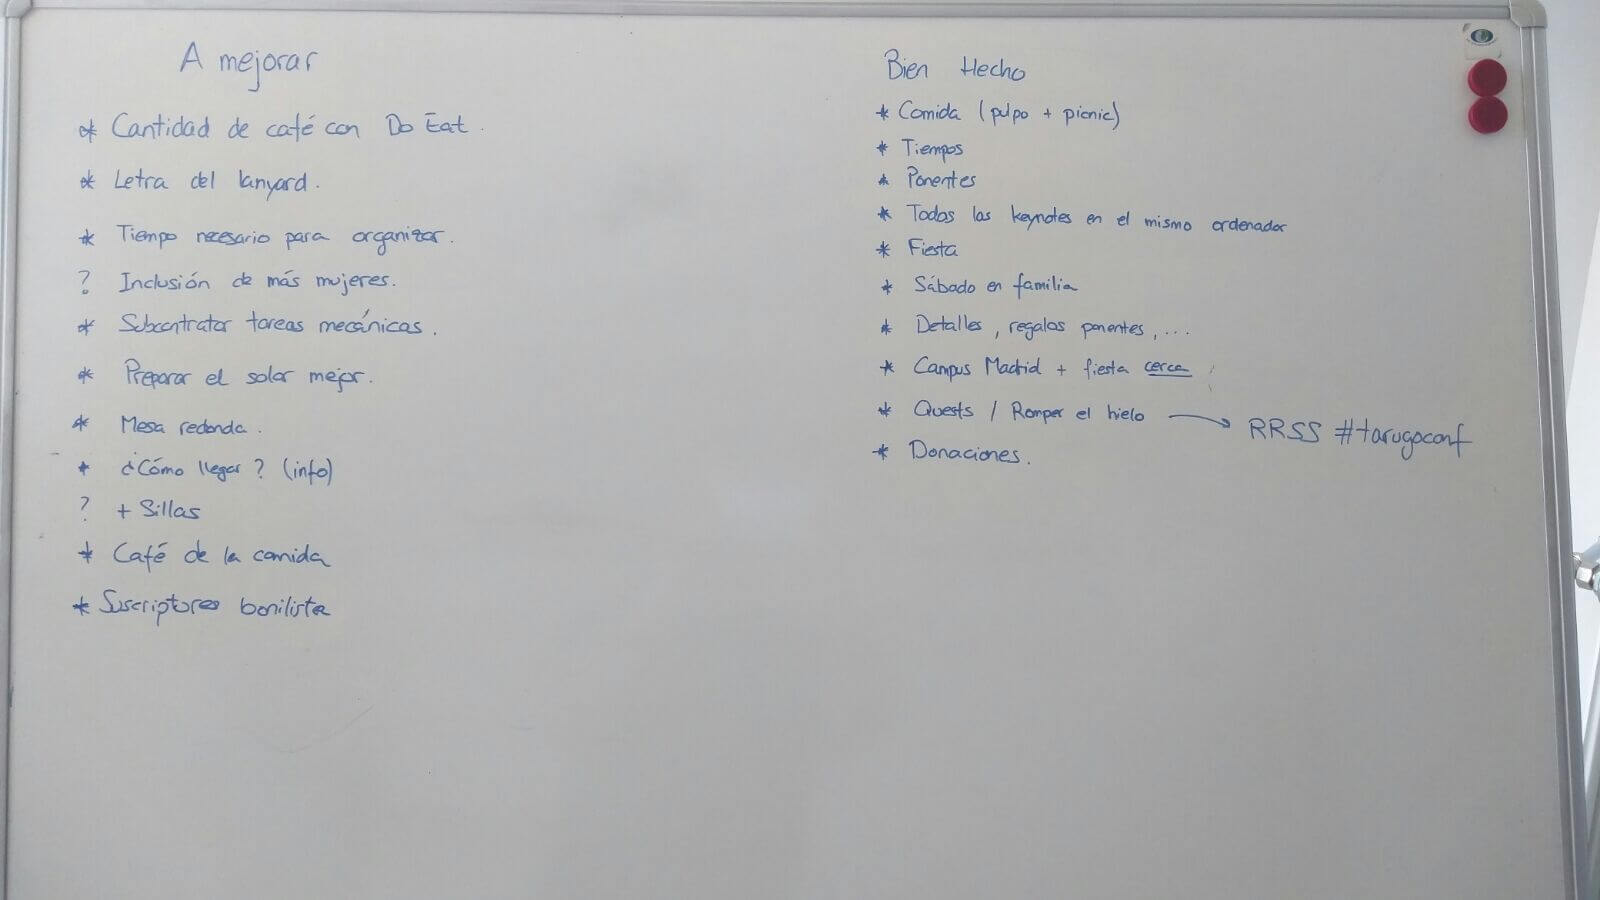 A mejorar
* Cantidad de café con Do Eat.
* Letra del lanyard.
* Tiempo necesario para organizar.
? Inclusión de más mujeres.
* Subcontratar tareas mecánicas.
* Preparar el solar mejor.
* Mesa redonda.
* ¿Cómo llegar? (info)
? + Sillas
* Café de la comida
* Suscriptores bonilista
Bien Hecho
* Comida (pulpo + picnic)
* Tiempos
* Ponentes
* Todas las keynotes en el mismo ordenador
* Fiesta
* Sábado en familia
* Detalles, regalos ponentes, ...
* Campus Madrid + fiesta cerca
* Quests / Romper el hielo → RRSS #tarugoconf
* Donaciones.